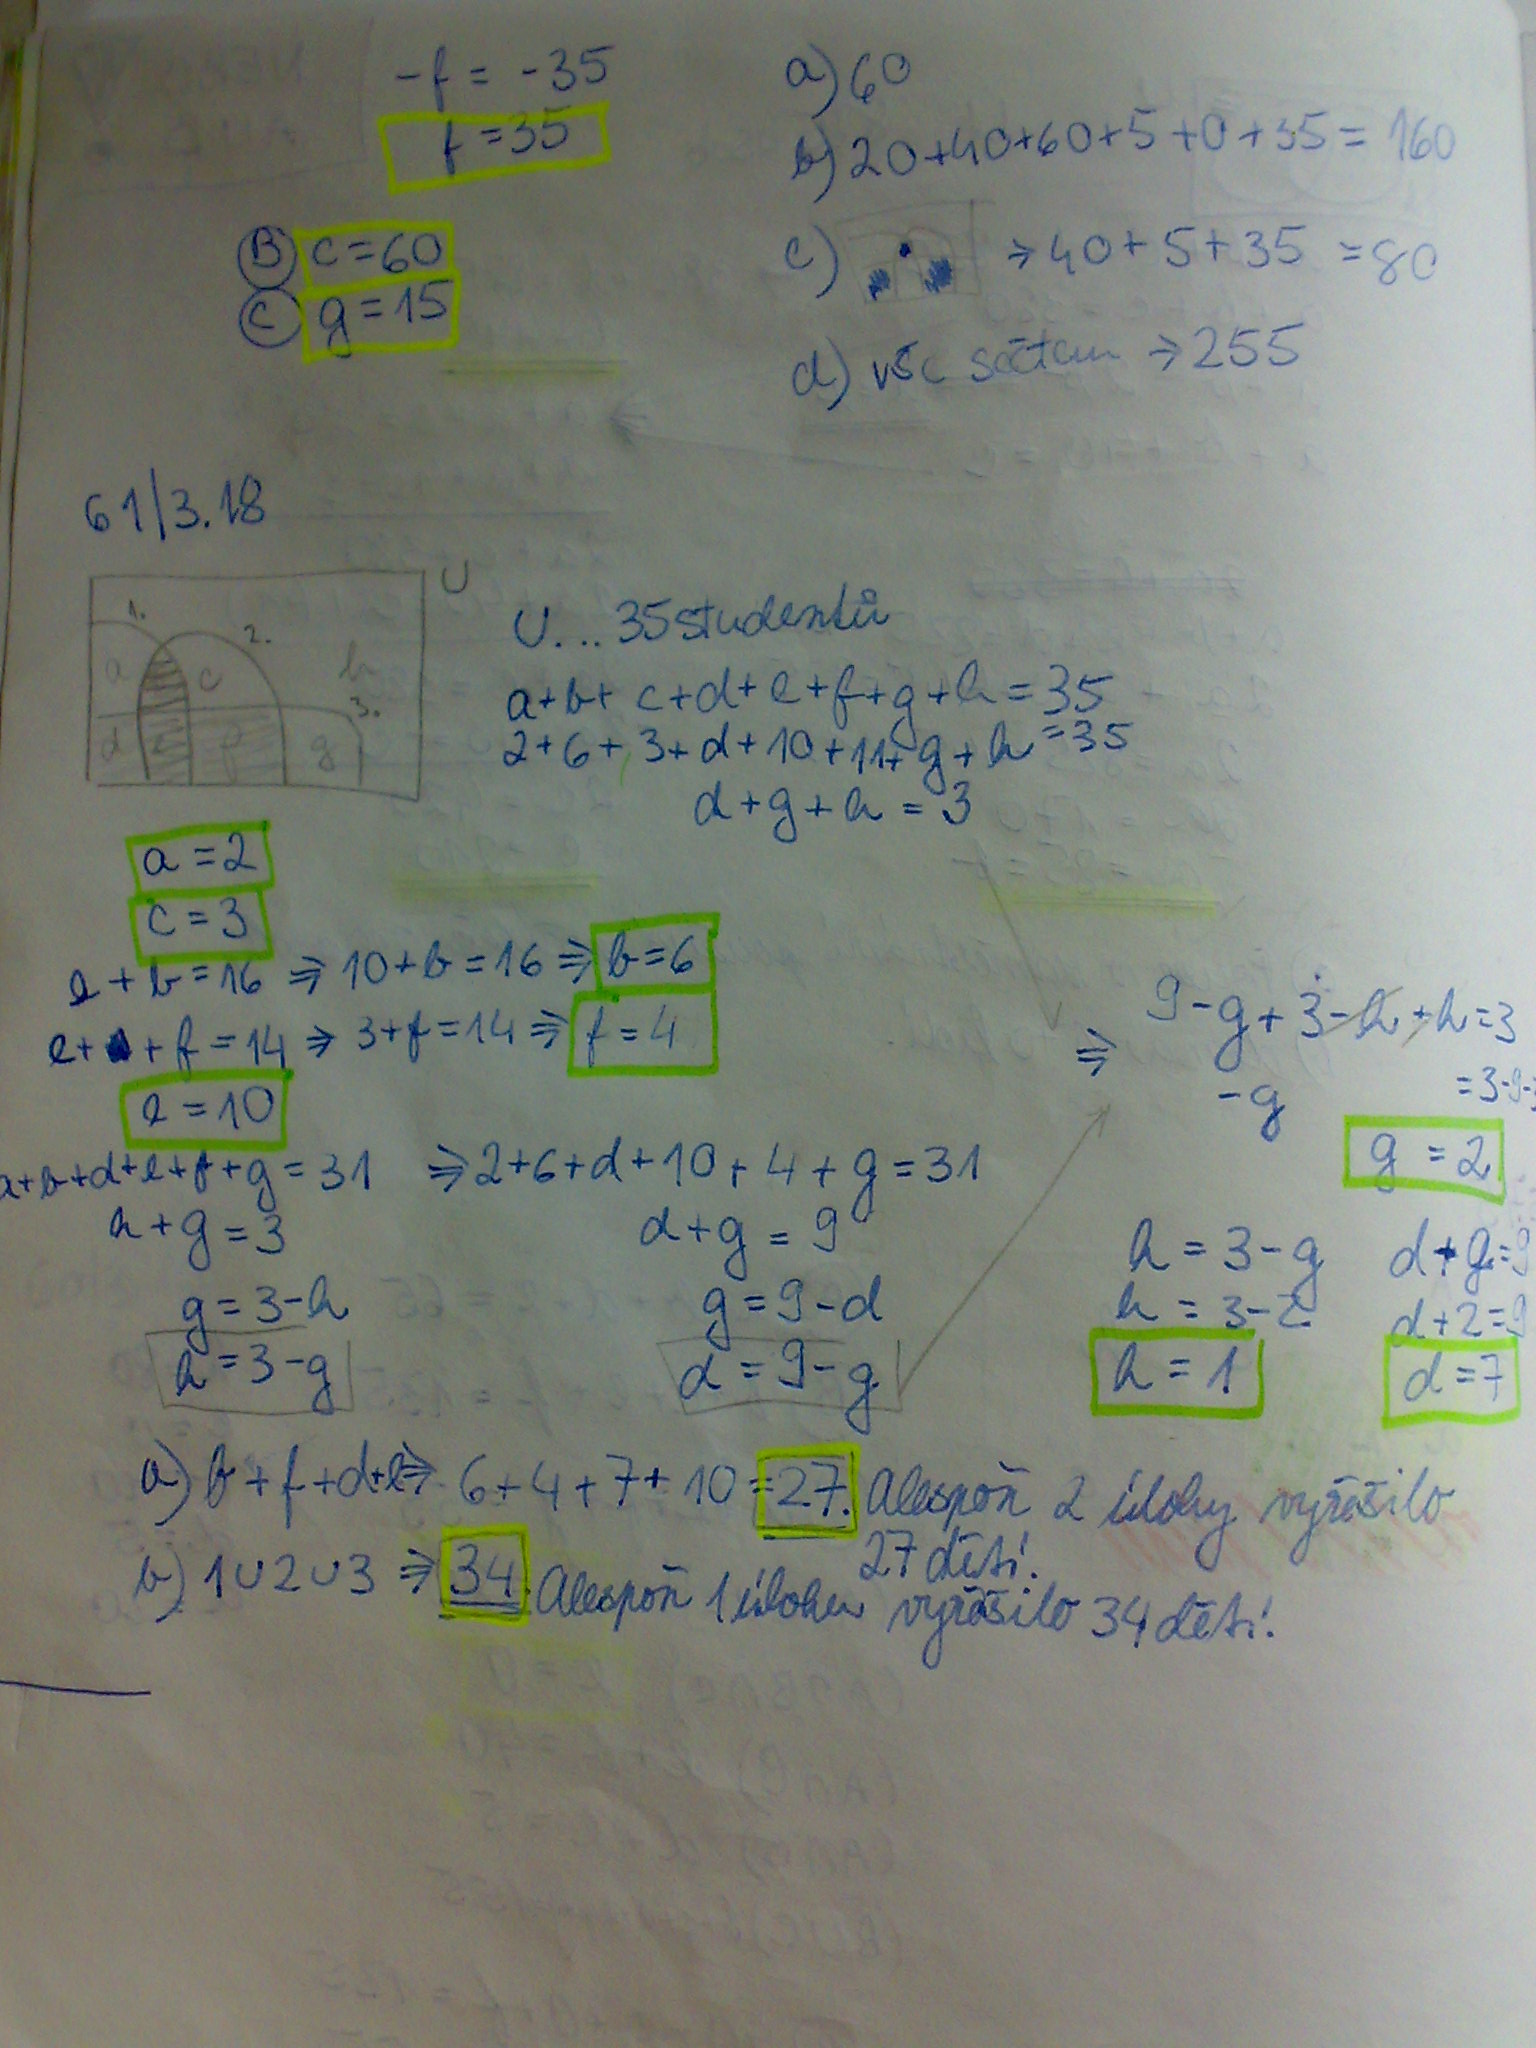 -f = -35
f = 35
B c = 60
C g = 15
a) 60
b) 20+40+60+5+0+35 = 160
c) ⇒ 40+5+35 = 80
d) vše sečtem ⇒ 255
61/3.18
U
1. 2.
a c h
3.
d e f g
U... 35 studentů
a+b+c+d+e+f+g+h = 35
2+6+3+d+10+11+g+h = 35
d+g+h = 3
a = 2
c = 3
e+b = 16 ⇒ 10+b = 16 ⇒ b = 6
e+ +f = 14 ⇒ 3+f = 14 ⇒ f = 4
e = 10
a+b+d+e+f+g = 31 ⇒ 2+6+d+10+4+g = 31
h+g = 3
g = 3-h
h = 3-g
d+g = 9
g = 9-d
d = 9-g
⇒ 9-g+3-h+h=3
-g = 3-9-3
g = 2
h = 3-g
h = 3-2
h = 1
d+g=9
d+2=9
d = 7
a) b+f+d+e ⇒ 6+4+7+10 = 27. Alespoň 2 úlohy vyřešilo
27 dětí.
b) 1∪2∪3 ⇒ 34. Alespoň 1 úlohu vyřešilo 34 dětí.